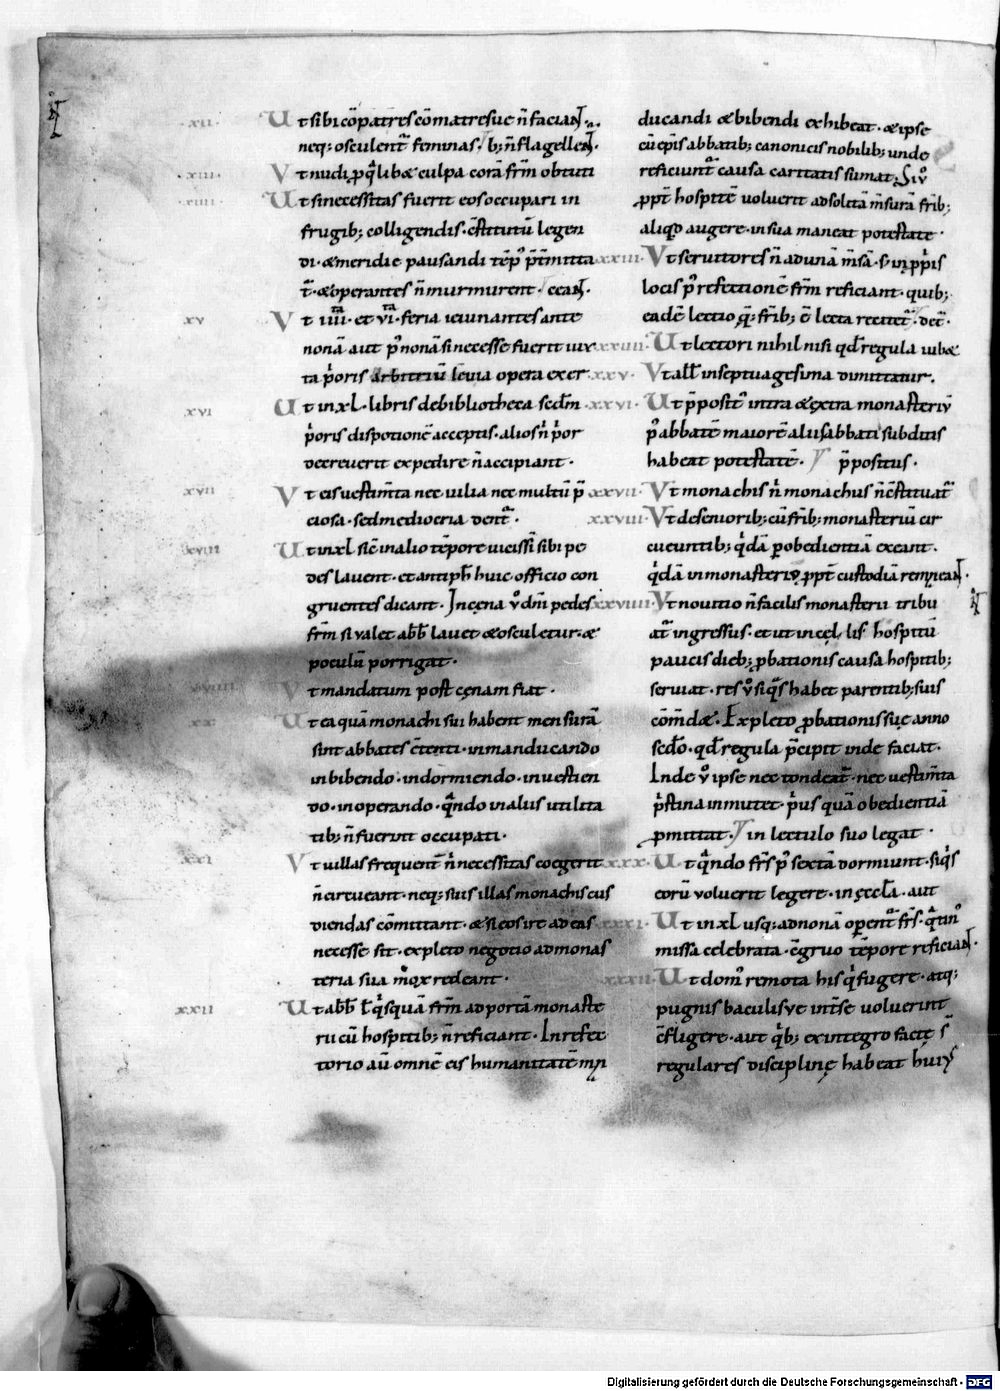 .xii. Ut sibi cōpatres cōmatresue n̄ faciaNT.
neq; osculent᷑ feminas. b; n̄ flagelleNT.
.xiii. Vt nudi ꝓ qͥlibet culpa corā frm̄ obtuti
.xiiii. Ut si necessitas fuerit eos occupari in
frugib; colligendis. c̄stitutū legen
di. & meridie pausandi tēpꝰ p̄tmitta
t᷑. & operantes n̄ murmurent.
xv Vt iiiita. et vita. feria ieiunantes ante
nonā aut pꝰ nonā si necesse fuerit iux
ta pͥoris arbitriū leuia opera exer
xvi Ut in xl. libris de bibliotheca secdm̄
pͥoris dispotionē acceptis. alios n̄ pͥor
decreuerit expedire n̄ accipiant.
xvii Vt eis uestim̄ta nec uilia nec multū p̄
ciosa. sed mediocria dent᷑.
xviii Ut in xl sic̄ in alio tēpore uicissī sibi pe
des lauent. et antiph̄ huic officio con
gruentes dicant. In cęna v̊ dn̄i pedes
frm̄ si ualet abb̄ lauet & osculetur. &
poculū porrigat.
xviiii Vt mandatum post cęnam fiat.
xx Ut ea quā monachi sui habent mensurā
sint abbates c̄tenti. in manducando
in bibendo. in dormiendo. in uestien
do. in operando. qͣndo in aliis utilita
tib; n̄ fuerint occupati.
xxi Vt uillas frequent̄ nͥ necessitas coegerit
n̄ circueant. neq; suis illas monachis cus
diendas cōmittant. & si eos ire ad eas
necesse sit. expleto negotio ad monas
teria sua mox redeant.
xxii Ut abb̄ ł qͥsquā frm̄ ad portā monaste
rii cū hospitib; n̄ reficiant. In refec
torio aū omnē eis humanitatē mͣn
ducandi & bibendi exhibeat. & ipse
cū ep̄is abbatib; canonicis nobilib; unde
reficiunt᷑ causa caritatis sumat. Siv̊
ꝓpt̄ hospitē uoluerit ad solitā m̄surā frib̄;
aliqd augere. in sua maneat potestate.
xxiii. Vt seruitores n̄ ad unā m̄sā. s; in ꝓpͥis
locis pꝰ refectionē frm̄ reficiant. quib;
eadē lectio q̄; frib̄; ē lecta recitet᷑.
xxiiii. Ut lectori nihil nisi qd̄ regula iub&
xxv. Vt all̄ in septuagesima dimittatur.
xxvi. Ut p̄positꝰ intra & extra monasteriū
pꝰ abbatē maiorē aliis abbati subditis
habeat potestatē. p̄positus.
xxvii. Vt monachis nͥ monachus n̄ c̄stituat᷑
xxviii. Vt de seniorib; cū frib̄; monasteriū cir
cueuntib; qͥdā ꝑ obedientiā exeant.
qͥdā in monasterio ꝓpt̄ custodiā remaneaNT.
xxviiii. Vt nouitio n̄ facilis monasterii tribu
at᷑ ingressus. et ut in cęllis hospitū
paucis dieb; ꝓbationis causa hospitib;
seruiat. res v̊ siqͣs habet parentib; suis
cōmd&. Expleto ꝓbationis suę anno
secdō. qd̄ regula p̄cipit inde faciat.
Inde v̊ ipse nec tondeat᷑. nec uestim̄ta
pͥstina inmutet. pͥus quā obedientiā
ꝓmittat. in lectulo suo legat.
xxx. Ut qͣndo frs̄ pꝰ sextā dormiunt. siqͥs
eorū uoluerit legere. in ęccła. aut
xxxi. Ut in xl usq; ad nonā operent᷑ frs̄. qͣtinꝰ
missa celebrata. c̄gruo tēpore reficiaNT.
xxxii. Ut domꝰ remota his qͥ fugere. atq;
pugnis baculisve int̄se uoluerint
c̄fligere. aut qͥb; ex integro facit s̄
regulares disciplinę habeat huiꝰ
Digitalisierung gefördert durch die Deutsche Forschungsgemeinschaft - DFG